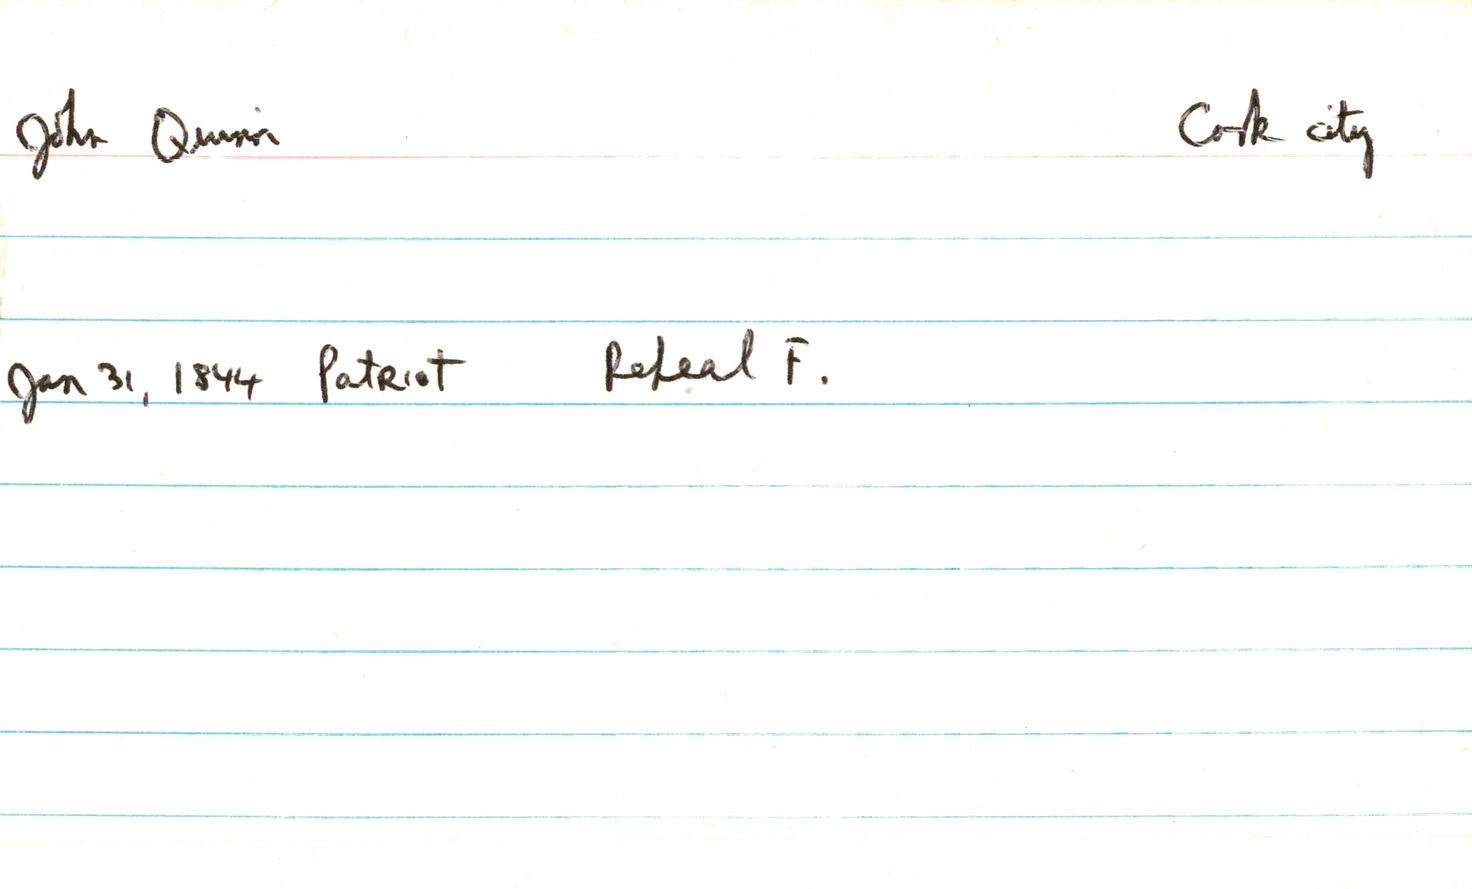 John Quinn Cork city
Jan 31, 1844 Patriot Repeal F.